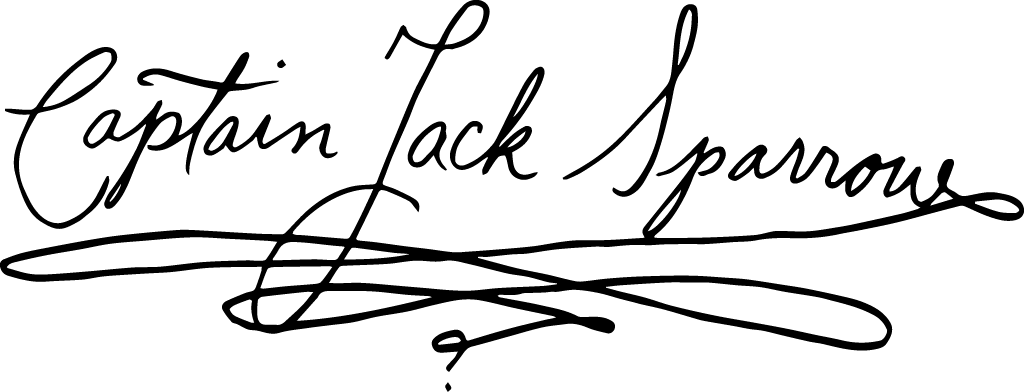 Captain Jack Sparrow